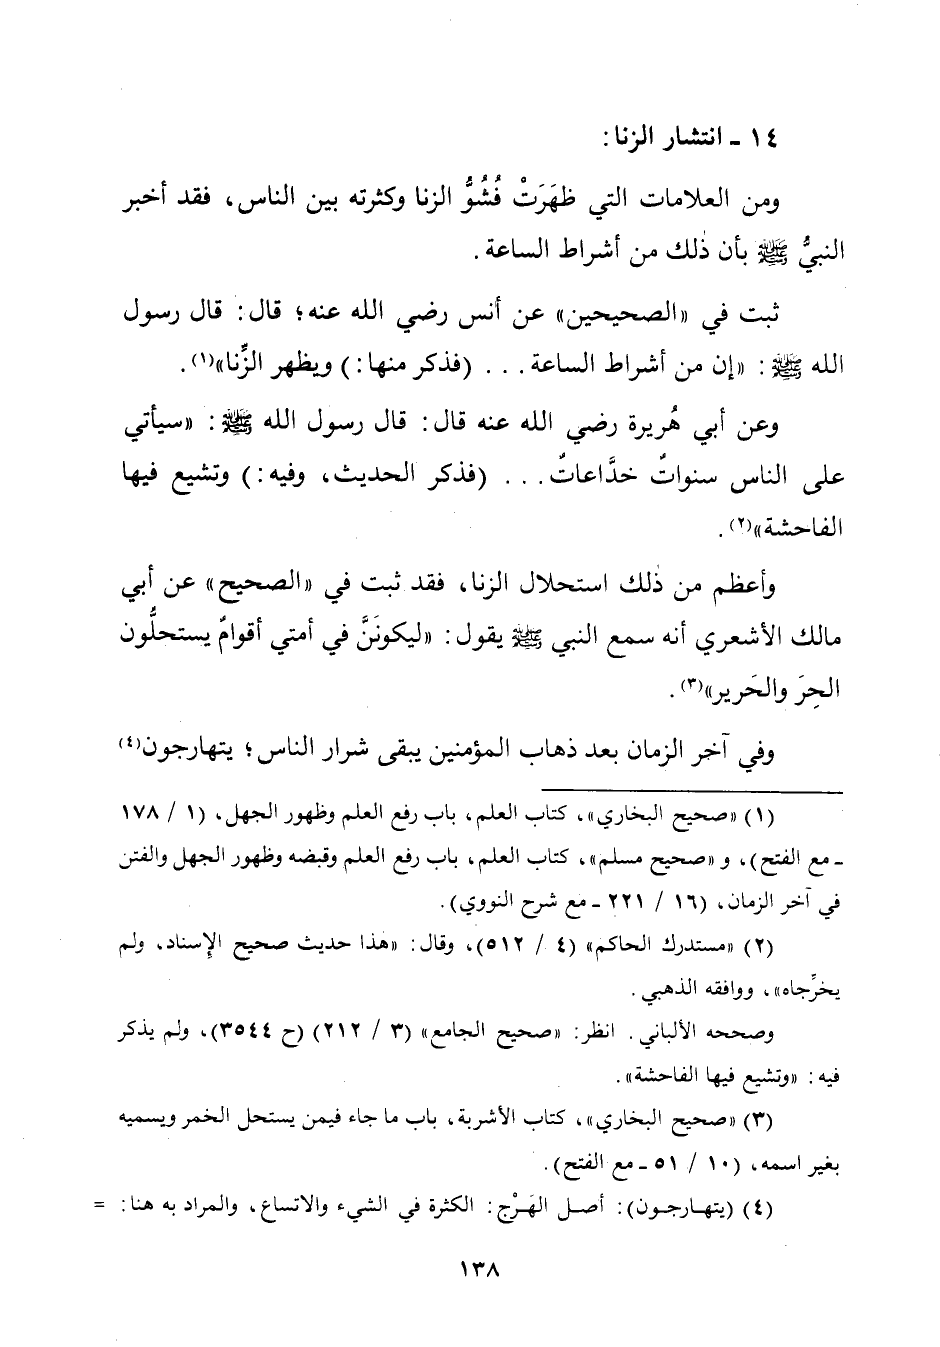 ١٤ - انتشار الزنا:
ومن العلامات التي ظهَرَتْ فُشُوُّ الزنا وكثرته بين الناس، فقد أخبر
النبيُّ ﷺ بأن ذٰلك من أشراط الساعة.
ثبت في «الصحيحين» عن أنس رضي الله عنه؛ قال: قال رسول
الله ﷺ: «إن من أشراط الساعة... (فذكر منها:) ويظهر الزِّنا»(١).
وعن أبي هُريرة رضي الله عنه قال: قال رسول الله ﷺ: «سيأتي
على الناس سنواتٌ خدَّاعاتٌ... (فذكر الحديث، وفيه:) وتشيع فيها
الفاحشة»(٢).
وأعظم من ذٰلك استحلال الزنا، فقد ثبت في «الصحيح» عن أبي
مالك الأشعري أنه سمع النبي ﷺ يقول: «ليكونَنَّ في أمتي أقوامٌ يستحلُّون
الحِرَ والحَرير»(٣).
وفي آخر الزمان بعد ذهاب المؤمنين يبقى شرار الناس؛ يتهارجون(٤)
(١) «صحيح البخاري»، كتاب العلم، باب رفع العلم وظهور الجهل، (١ / ١٧٨
- مع الفتح)، و «صحيح مسلم»، كتاب العلم، باب رفع العلم وقبضه وظهور الجهل والفتن
في آخر الزمان، (١٦ / ٢٢١ - مع شرح النووي).
(٢) «مستدرك الحاكم» (٤ / ٥١٢)، وقال: «هذا حديث صحيح الإسناد، ولم
يخرِّجاه»، ووافقه الذهبي.
وصححه الألباني. انظر: «صحيح الجامع» (٣ / ٢١٢) (ح ٣٥٤٤)، ولم يذكر
فيه: «وتشيع فيها الفاحشة».
(٣) «صحيح البخاري»، كتاب الأشربة، باب ما جاء فيمن يستحل الخمر ويسميه
بغير اسمه، (١٠ / ٥١ - مع الفتح).
(٤) (يتهارجون): أصل الهَرْج: الكثرة في الشيء والاتساع، والمراد به هنا: =
١٣٨